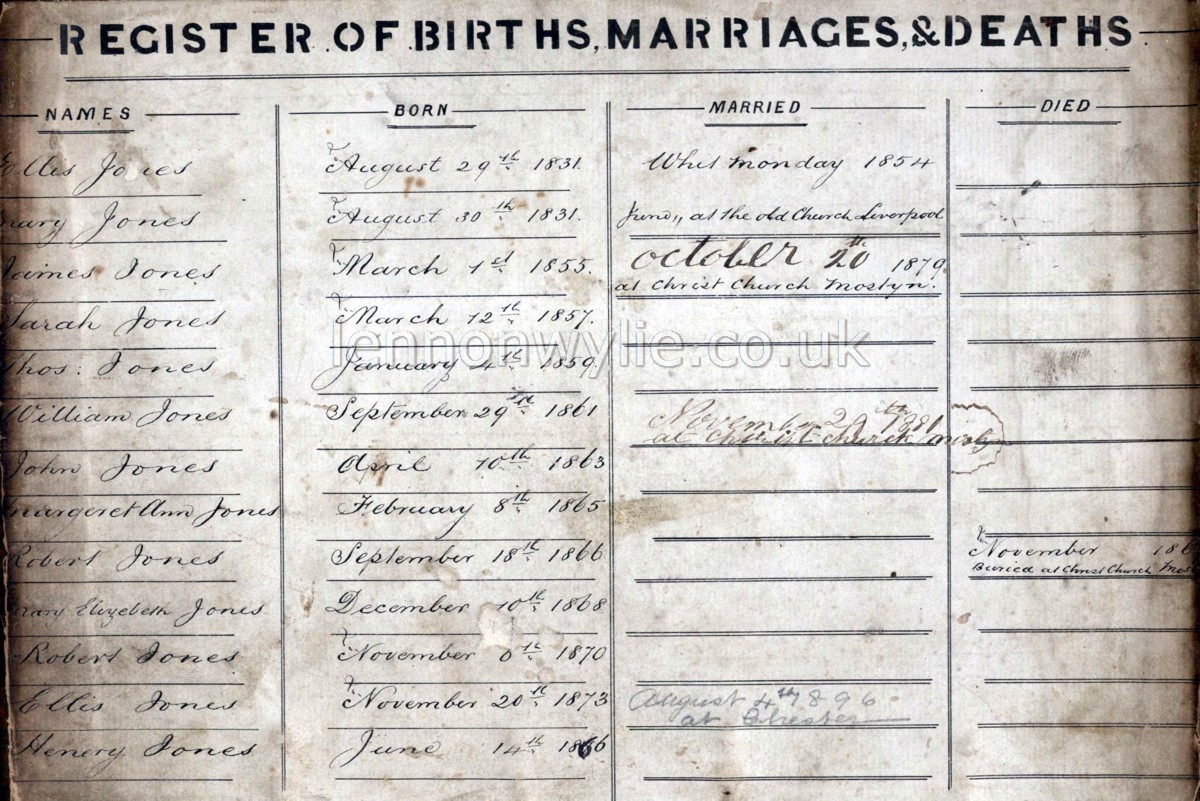 REGISTER OF BIRTHS, MARRIAGES, & DEATHS
NAMES BORN MARRIED DIED
Ellis Jones August 29th 1831. Whit Monday 1854
Mary Jones August 30th 1831. at the old Church Liverpool
James Jones March 1st 1855. October 20th 1879
at Christ Church Mostyn.
Sarah Jones March 12th 1857.
lennonwylie.co.uk
Thos: Jones January 4th 1859.
William Jones September 29th 1861 November
at Christ Church Mostyn
John Jones April 10th 1863
Margeret Ann Jones February 8th 1865
Robert Jones September 18th 1866 November 186
Buried at Christ Church Most
Mary Elizebeth Jones December 10th 1868
Robert Jones November 1870
Ellis Jones November 20th 1873 August 4th 1896
at Chester
Henery Jones June 14th